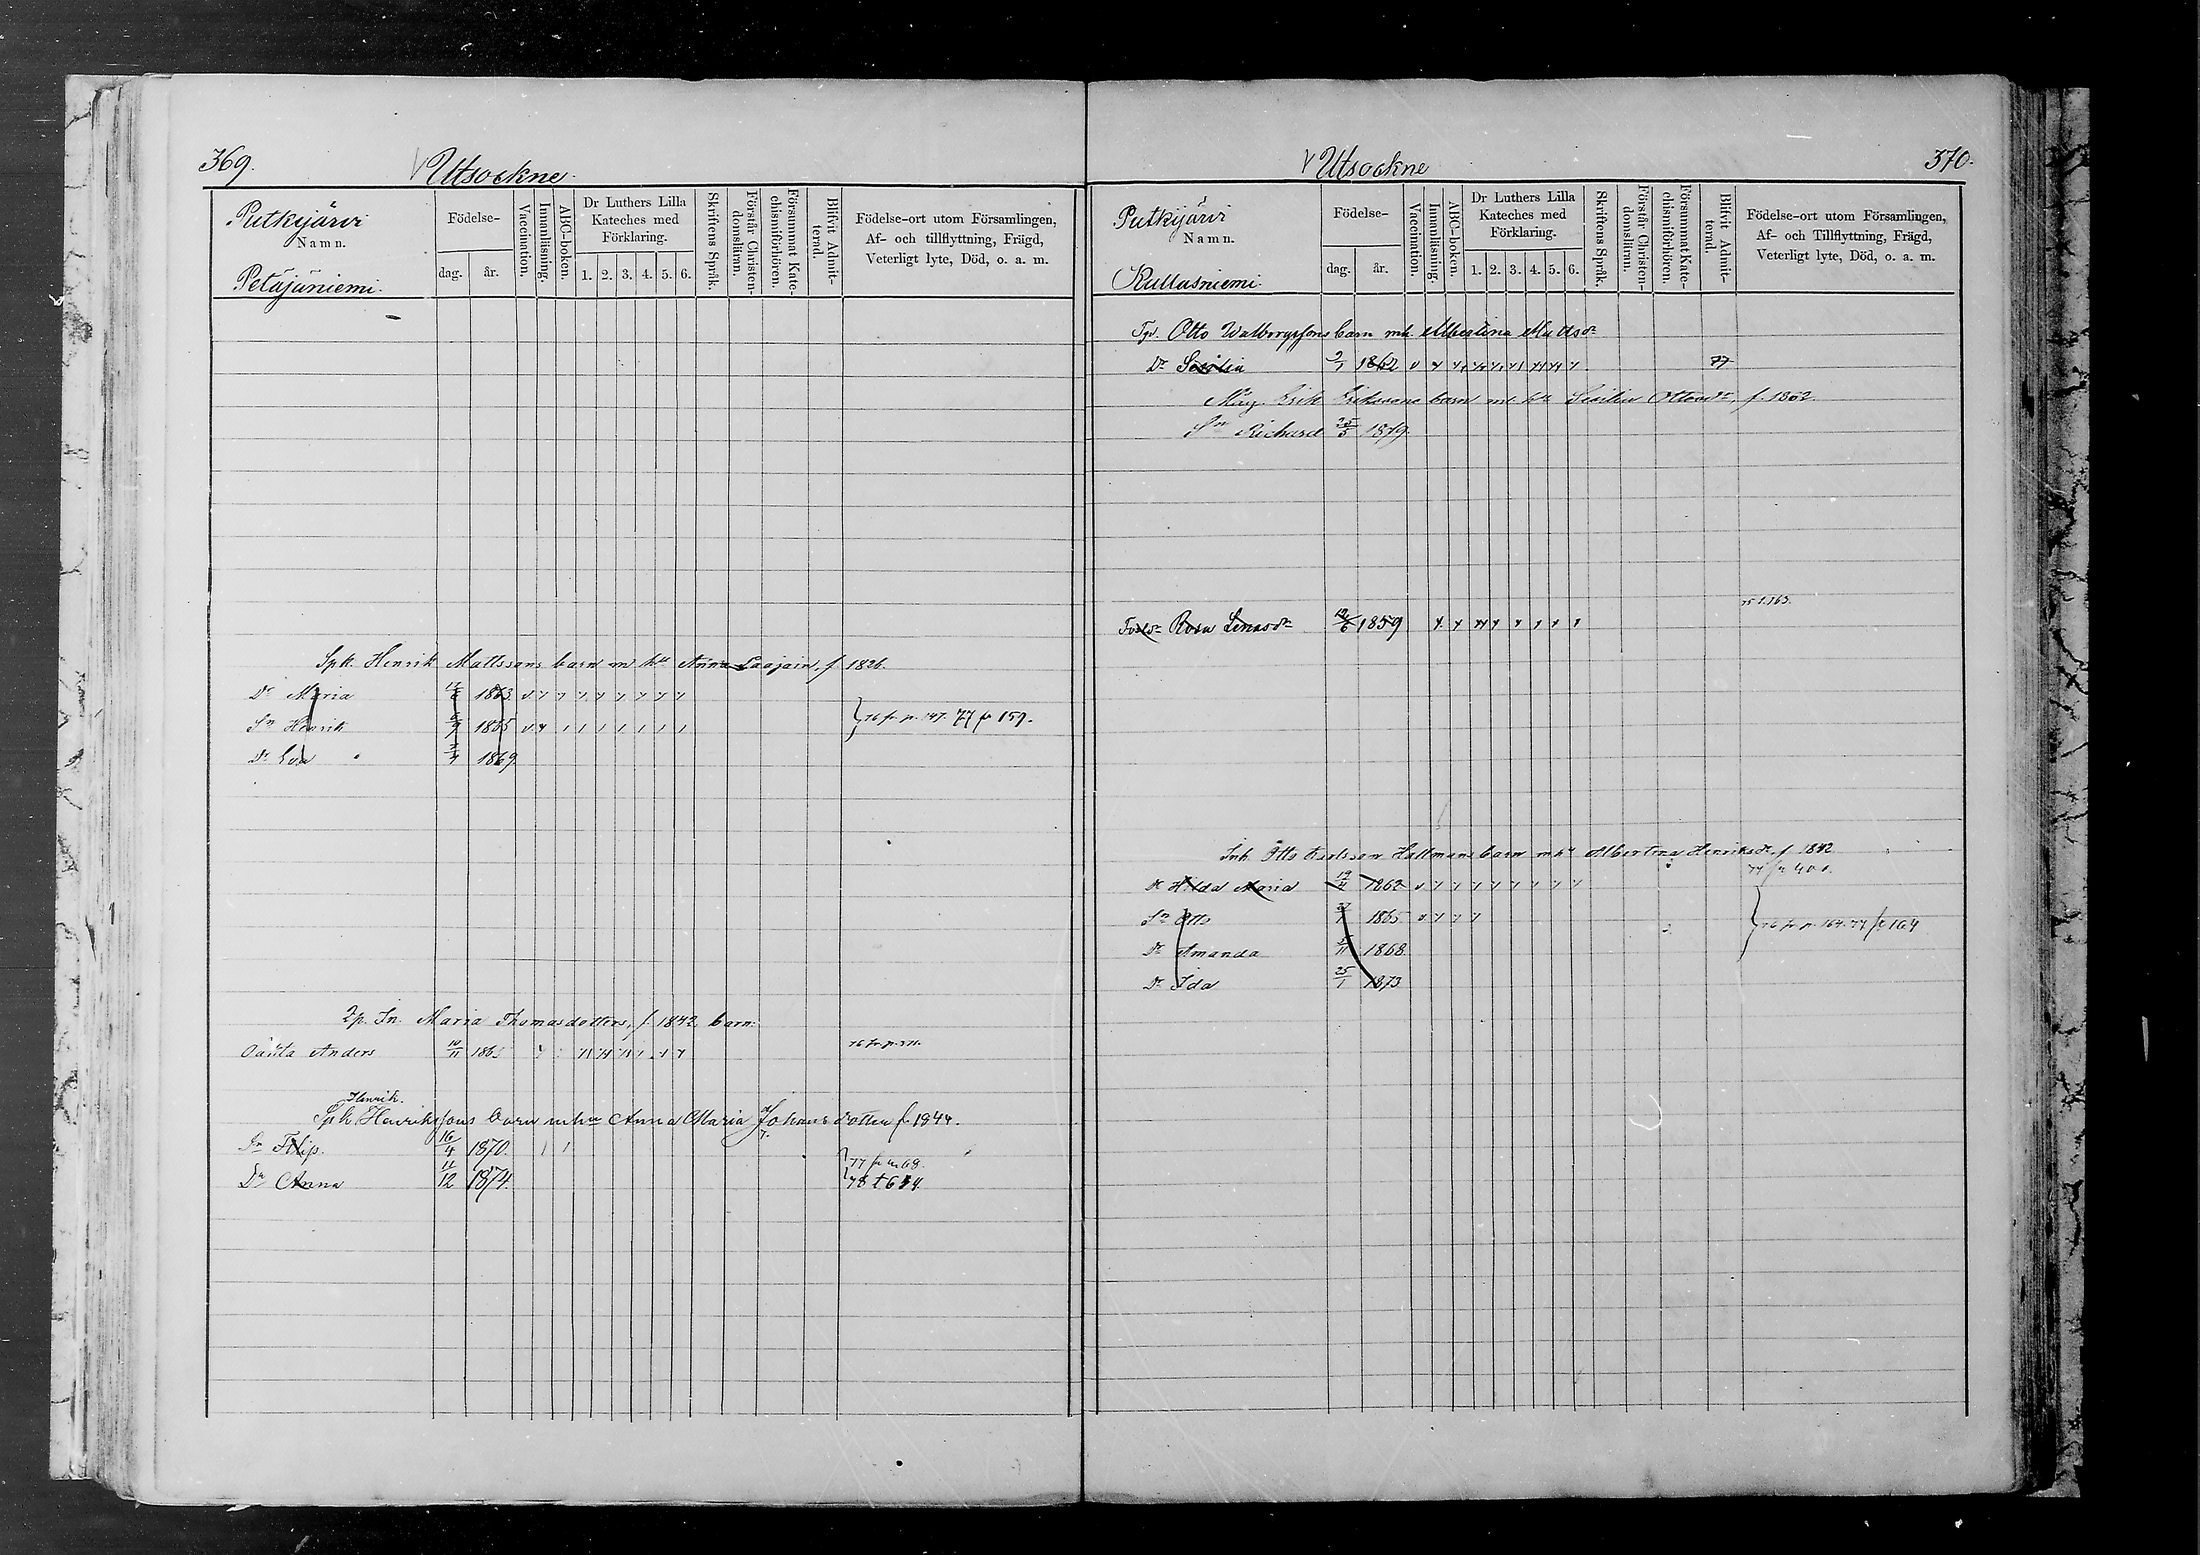 369.
Utsockne.
Putkijärvi
Namn.
Petäjäniemi.
Födelse-
dag. år.
Vaccination.
Innanläsning.
ABC-boken.
Dr Luthers Lilla
Kateches med
Förklaring.
1. 2. 3. 4. 5. 6.
Skriftens Språk.
Förstår Christen-
domsläran.
Försummat Kate-
chismiförhören.
Blifvit Admit-
terad.
Födelse-ort utom Församlingen,
Af- och tillflyttning, Frägd,
Veterligt lyte, Död, o. a. m.
Spk. Henrik Mattssons barn m hu Anna Laajain, f. 1826.
Dr Maria 1863
Sn Henrik 1865 76 fr p. 147. 77 fr 159.
Dr Eva 3/4 1869.
Maria Thomasdotters, f. 1842 barn:
Oäkta Anders 10/11 1865
Henrik
Spk Henrikssons barn m hu Anna Maria Johansdotter f. 1844.
Sn Filip. 16/4 1870.
77 fr 68.
Dr Anna 11/12 1874. 78 t 654.
Utsockne
370.
Putkijärvi
Namn.
Kullasniemi.
Födelse-
dag. år.
Vaccination.
Innanläsning.
ABC-boken.
Dr Luthers Lilla
Kateches med
Förklaring.
1. 2. 3. 4. 5. 6.
Skriftens Språk.
Förstår Christen-
domsläran.
Försummat Kate-
chismiförhören.
Blifvit Admit-
terad.
Födelse-ort utom Församlingen,
Af- och Tillflyttning, Frägd,
Veterligt lyte, Död, o. a. m.
Otto Walborgssons barn mh. Albertina Matsdr
Dr 1862 77
Erik Erikssons barn m. hu Sicilia Ottosdr, f. 1862.
Sn Richard 25/5 1879.
75 t. 163.
Rosa Lenasdr 12/6 1859
Inh. Otto Karlsson Hallmans barn m hu Albertina Henriksdr, f. 1842
77 fr 400.
Dr Hilda Maria 19/4 1862
Sn Otto 1865 76 fr p. 164. 77 fr 164
Dr Amanda 1868.
Dr Ida 25/1 1873